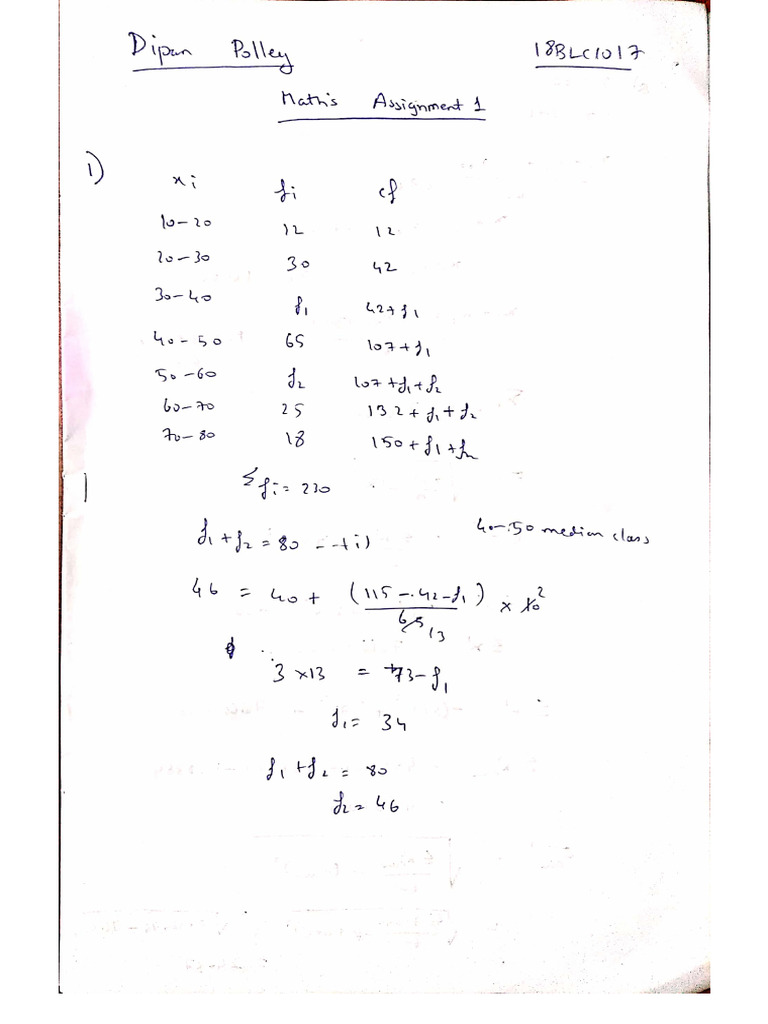 Dipan Polley 18BLC1017
Maths Assignment 1
1)
xi fi cf
10-20 12 12
20-30 30 42
30-40 f1 42+f1
40-50 65 107+f1
50-60 f2 107+f1+f2
60-70 25 132+f1+f2
70-80 18 150+f1+f2
Σfi = 230
f1+f2 = 80 --+i)
40-50 median class
46 = 40 + (115-42-f1)/65 13 × 10 2
3×13 = 73-f1
f1 = 34
f1+f2 = 80
f2 = 46